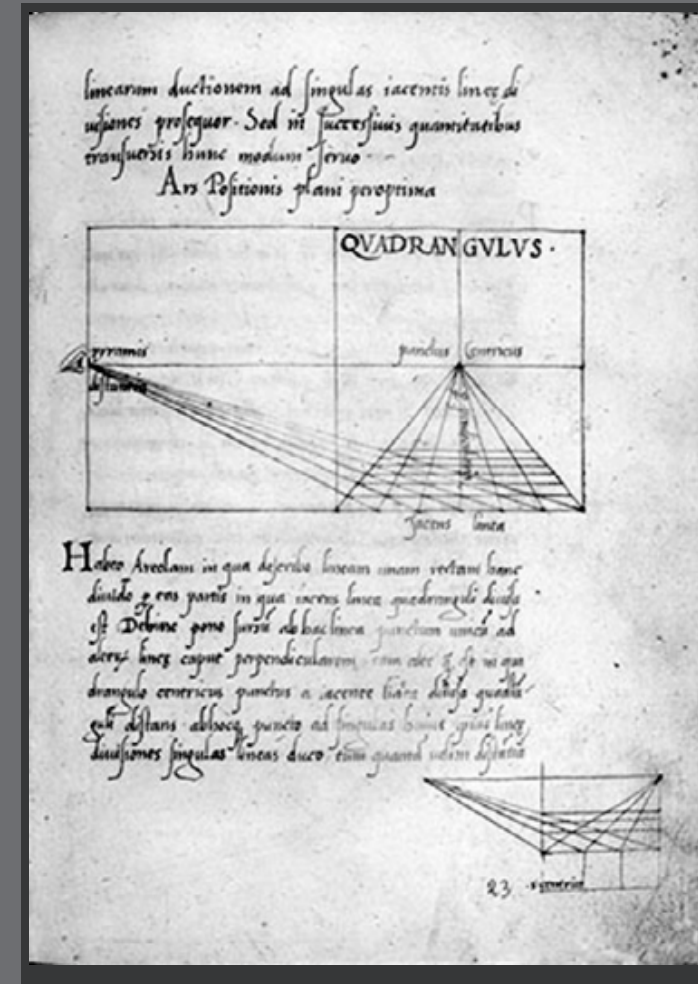 linearum ductionem ad singulas iacentis lineę di
uisiones prosequor. Sed in successiuis quantitatibus
transuersis hunc modum seruo
Ars Positionis plani peroptima
QVADRANGVLVS .
pyramis
punctus Centricus
distantię
Jacens linea
Habeo Areolam in qua describo lineam unam rectam hanc
diuido per eas partis in qua iacens linea quadranguli diuisa
est Dehinc pono sursum ab hac linea punctum unicum ad
lineę caput perpendicularem in qua
drangulo centricus punctus a iacente diuisa quadra
distans ab hocque puncto ad singulas huius ipius lineę
diuisiones singulas lineas duco, tum quantam uelim distantiam
23